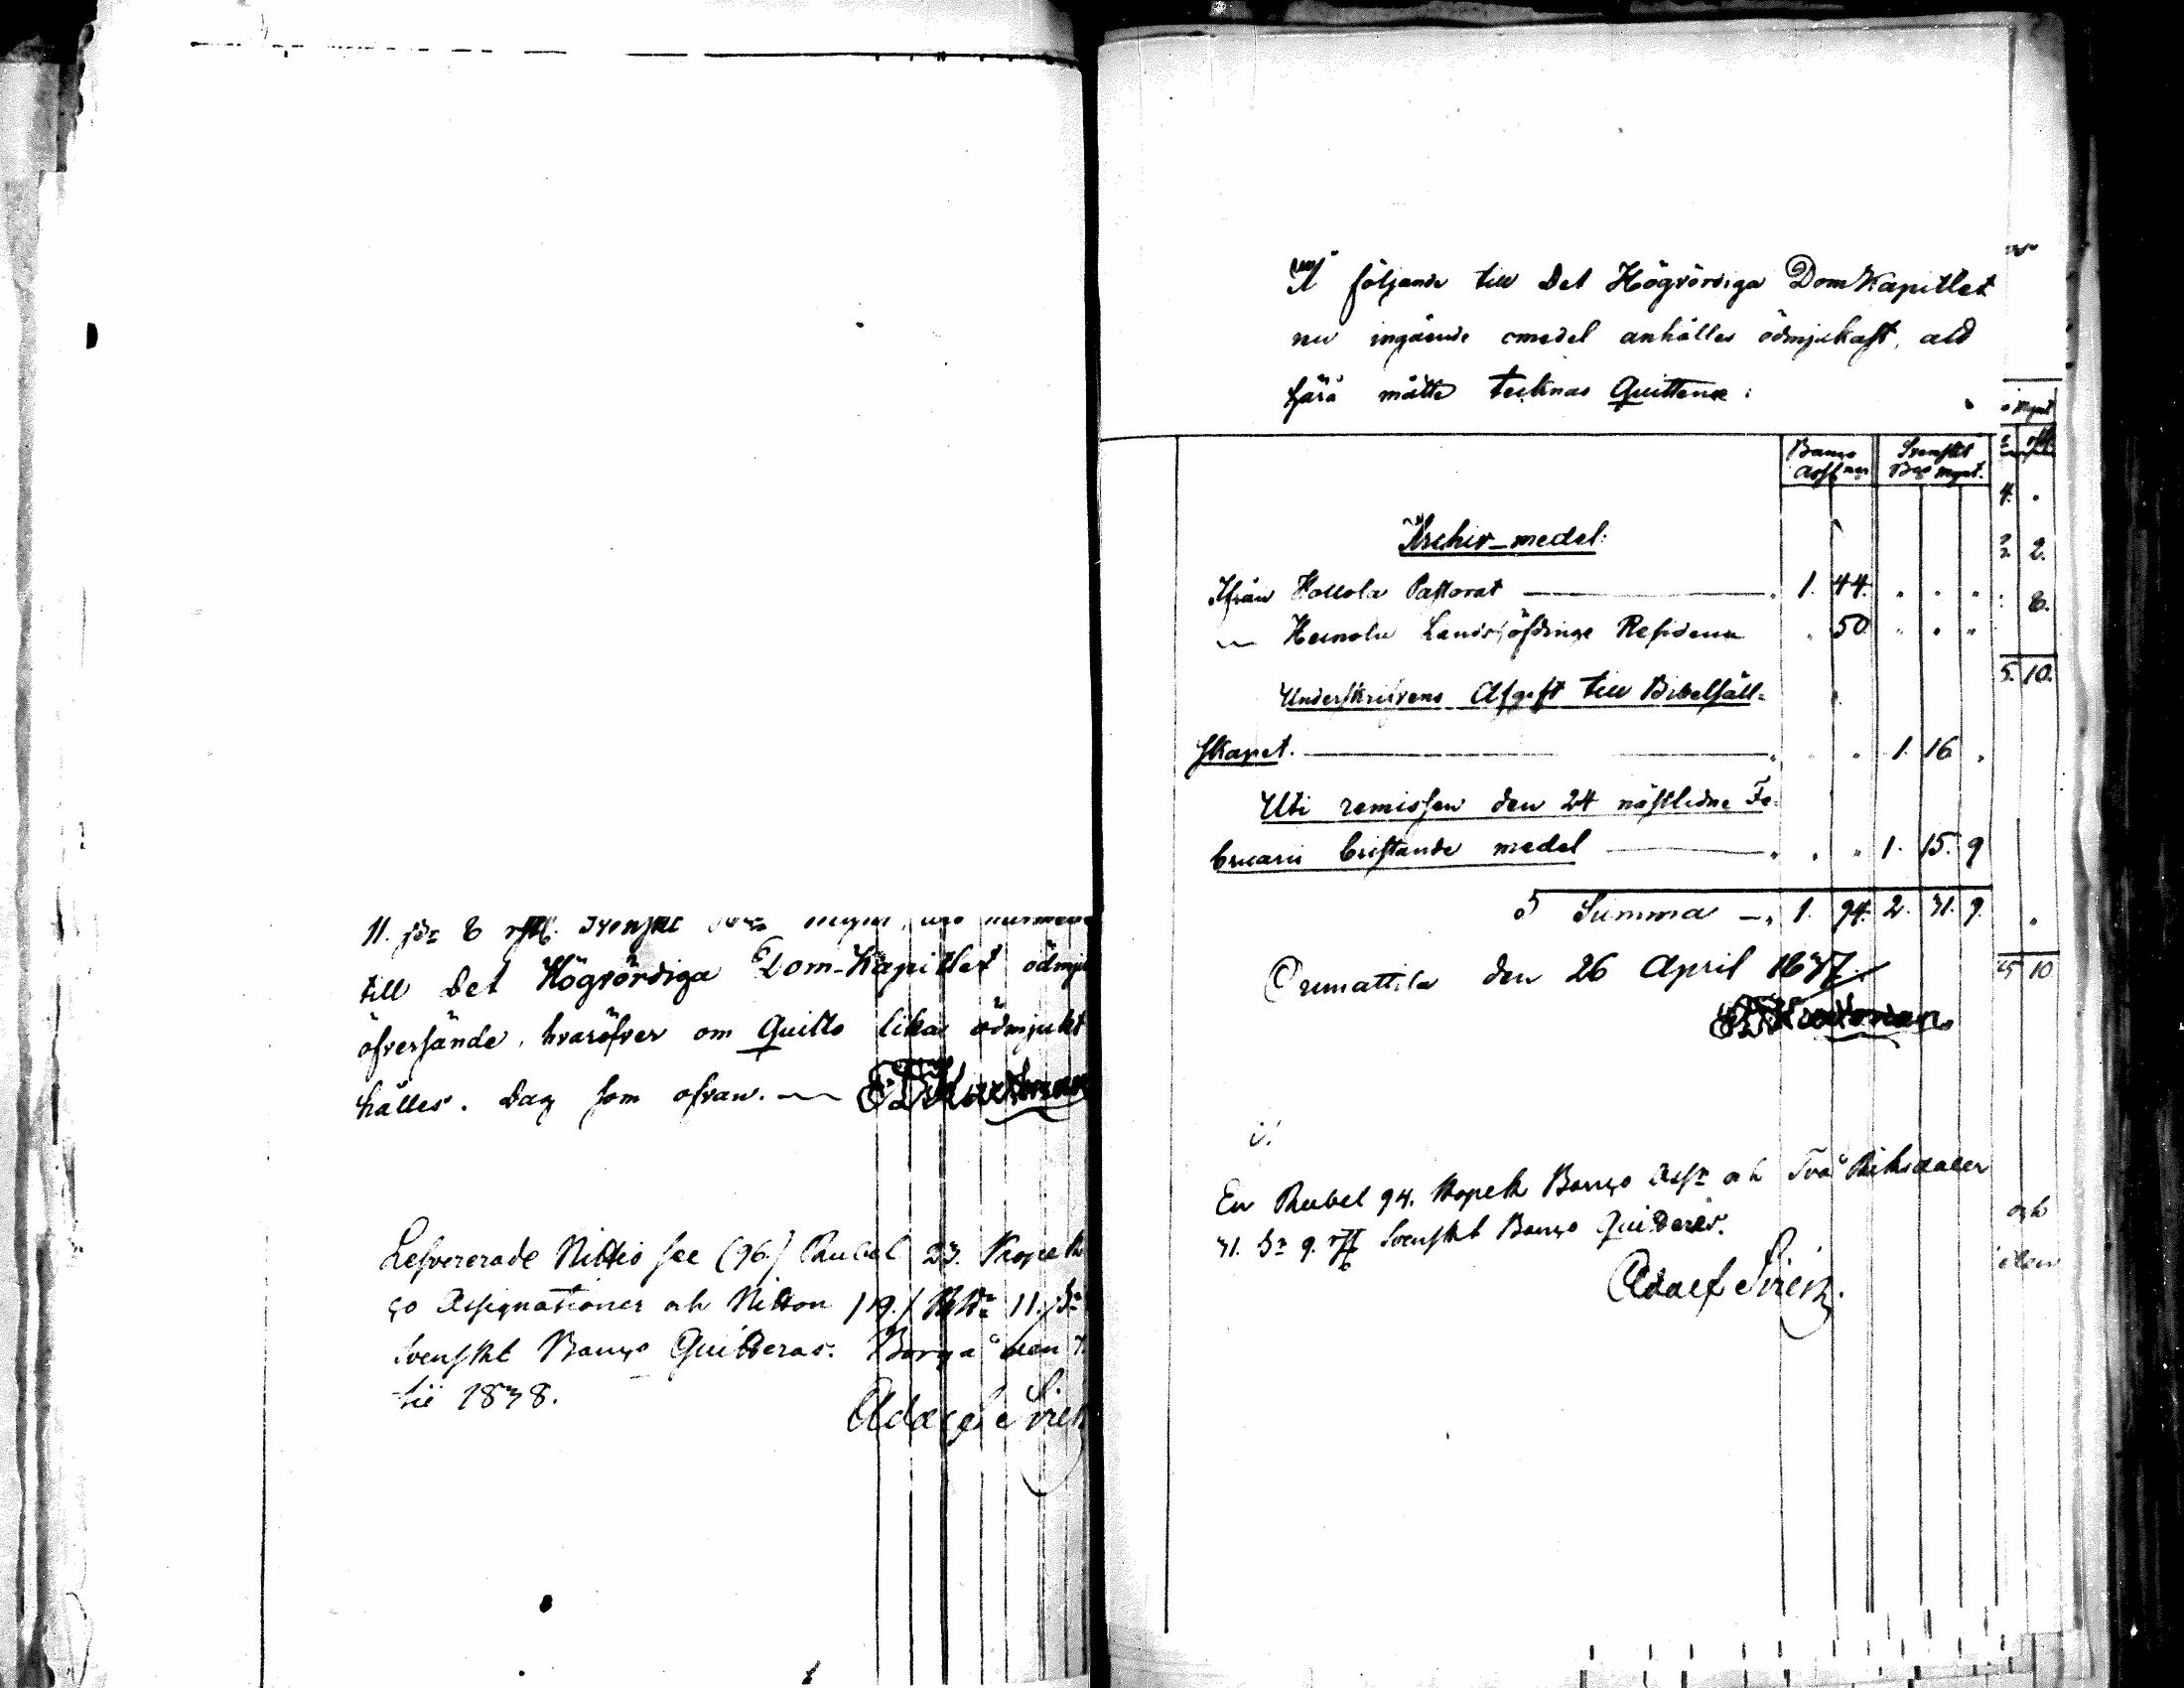 11. sk: 8 rst. Svenskt
till Det Högvördiga Dom-Kapitlet ödmju
öfversände, hvaröfver om Quitto likas ödmjukt
hålles. Dag som ofvan.
Lefvererade Nittio sex (96) Rubel 23. Kopek
ço Assignationer och Nitton (19.) RD: 11. s:
Svenskt Banço Quitteras. Borgå den
tii 1838.
Adolf Sirén
På följande till Det Högvördiga DomKapitlet
nu ingående medel anhålles ödmjukast, att
härå måtte tecknas Quittence:
Banço Assner Svenskt Bço Mynt.
Archiv-medel:
Ifrån Hollola Pastorat 1. 44.
Heinola Landshöfdinge Residence 50
Underskrifvens Afgift till Bibelsäll-
skapet. 1. 16
Uti remissen den 24 nästlidne Fe-
bruarii bristande medel 1. 15. 9
Summa 1. 94. 2. 31. 9.
Orimattila den 26 April 1837.
En Rubel 94. Kopek Banço Ass: och Två Riksdaler
31. s: 9. rst Svenskt Banço Quitteres.
Adolf Sirén.
4.
2 2.
8.
5. 10.
5 10
och